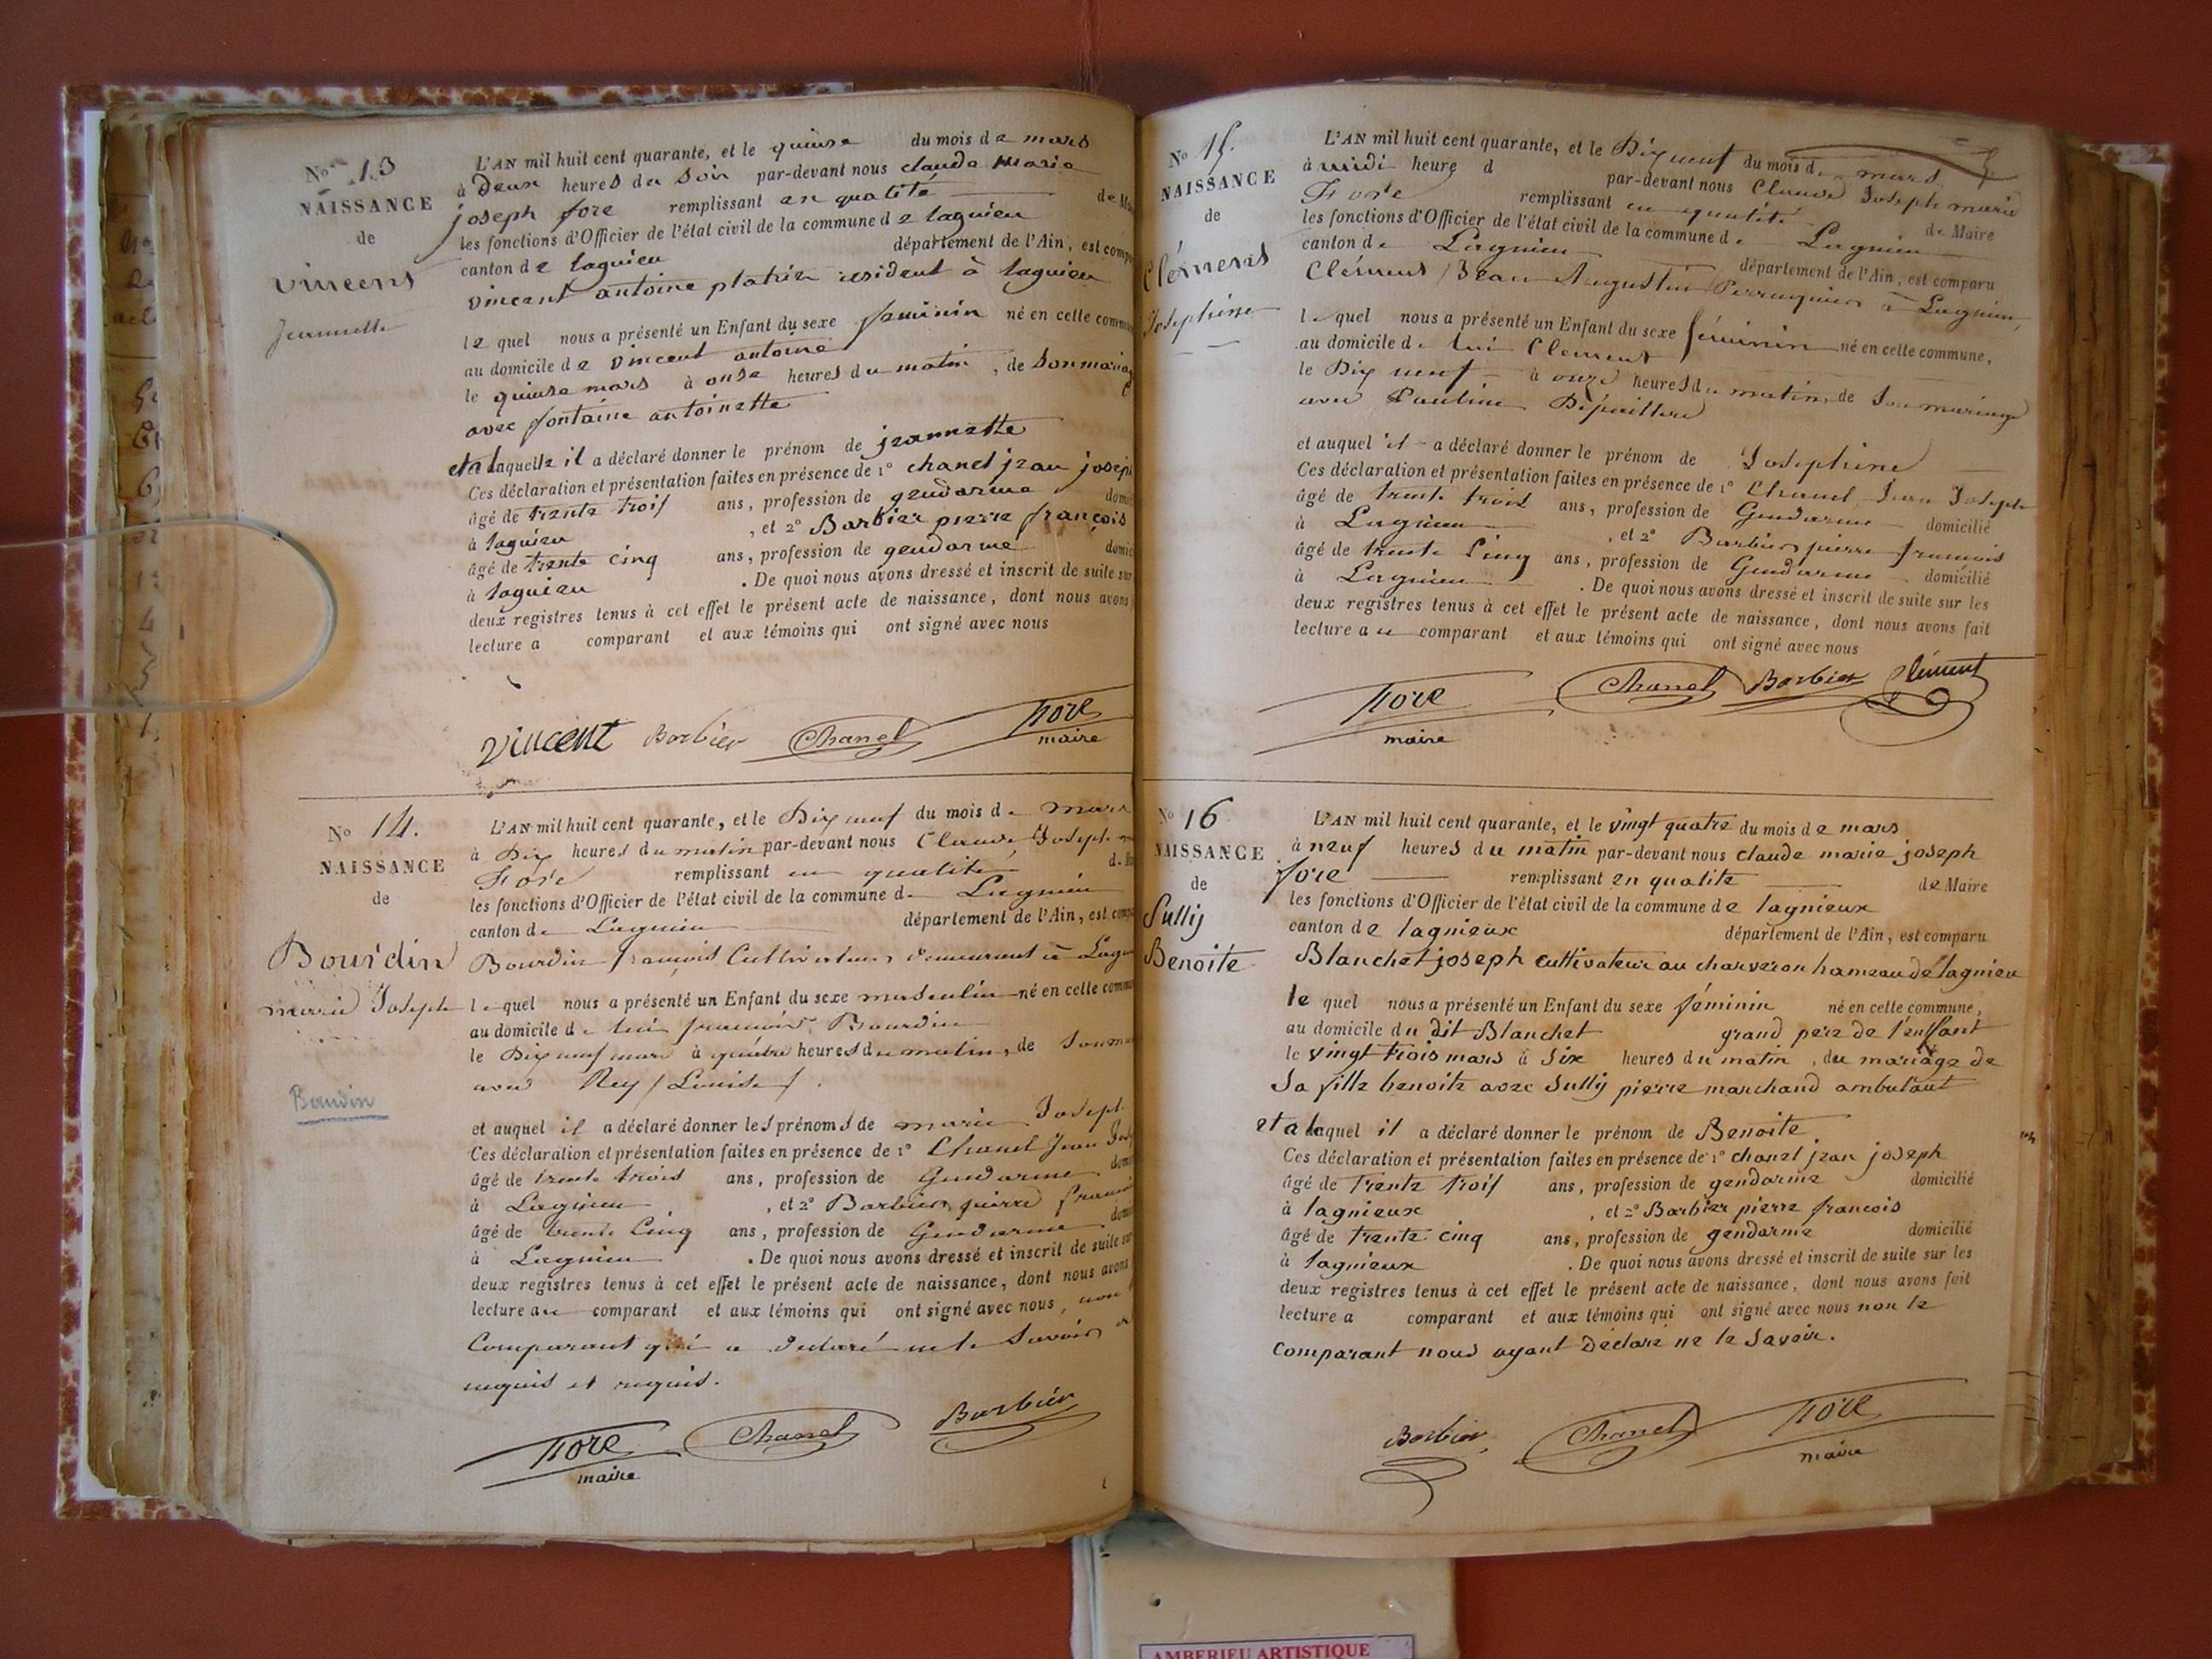 No 13
NAISSANCE
de
Vincent
Jeannette
L'AN mil huit cent quarante, et le quinse du mois de mars
à Deux heures du Soir par-devant nous claude Marie
joseph fore remplissant en qualité de
les fonctions d'Officier de l'état civil de la commune de lagnieu
canton de lagnieu département de l'Ain, est
vincent antoine platrier resident à lagnieu
le quel nous a présenté un Enfant du sexe feminin né en cette
au domicile de vincent antoine
le quinse mars à onse heures du matin, de Son
avec fontaine antoinette
et a laquelle il a déclaré donner le prénom de jeannette
Ces déclaration et présentation faites en présence de 1° chanel jean joseph
âgé de trente trois ans, profession de gendarme
à lagnieu, et 2° Barbier pierre françois
âgé de trente cinq ans, profession de gendarme
à lagnieu. De quoi nous avons dressé et inscrit de suite sur
deux registres tenus à cet effet le présent acte de naissance, dont nous avons
lecture a comparant et aux témoins qui ont signé avec nous
Vincent Barbier Chanel Fore
maire
No 14.
NAISSANCE
de
Bourdin
marie Joseph
Baudin
L'AN mil huit cent quarante, et le Dix neuf du mois de mars
à Dix heures du matin par-devant nous Claude Joseph
Foré remplissant en qualité
les fonctions d'Officier de l'état civil de la commune de Lagnieu
canton de Lagnieu département de l'Ain, est
Bourdin françois Cultivateur demeurant à
le quel nous a présenté un Enfant du sexe masculin né en cette
au domicile de lui françois Bourdin
le Dix neuf mars à quatre heures du matin, de
avec Rey (Louise).
et auquel il a déclaré donner les prénoms de marie Joseph
Ces déclaration et présentation faites en présence de 1° Chanel Jean
âgé de trente trois ans, profession de Gendarme
à Lagnieu, et 2° Barbier pierre
âgé de trente Cinq ans, profession de Gendarme
à Lagnieu. De quoi nous avons dressé et inscrit de suite sur
deux registres tenus à cet effet le présent acte de naissance, dont nous avons
lecture au comparant et aux témoins qui ont signé avec nous, non
Comparant qui a declaré ne le Savoir
requis.
Fore Chanel Barbier
maire
No 15.
NAISSANCE
de
Clémens
Josephine
L'AN mil huit cent quarante, et le Dix neuf du mois de mars
à midi heure d par-devant nous Claude Joseph marie
Foré remplissant en qualité de Maire
les fonctions d'Officier de l'état civil de la commune de Lagnieu
canton de Lagnieu département de l'Ain, est comparu
Clémens (Jean Augustin) Perruquier à Lagnieu,
le quel nous a présenté un Enfant du sexe féminin né en cette commune,
au domicile de lui Clement
le Dix neuf à onze heures du matin, de Son mariage
avec Pauline
et auquel il a déclaré donner le prénom de Josephine
Ces déclaration et présentation faites en présence de 1° Chanel Jean Joseph
âgé de trente trois ans, profession de Gendarme domicilié
à Lagnieu, et 2° Barbier pierre françois
âgé de trente Cinq ans, profession de Gendarme domicilié
à Lagnieu. De quoi nous avons dressé et inscrit de suite sur les
deux registres tenus à cet effet le présent acte de naissance, dont nous avons fait
lecture au comparant et aux témoins qui ont signé avec nous
Fore Chanel Barbier Clément
maire
No 16
NAISSANCE
de
Sully
Benoite
L'AN mil huit cent quarante, et le vingt quatre du mois de mars
à neuf heures du matin par-devant nous claude marie joseph
fore remplissant en qualite de Maire
les fonctions d'Officier de l'état civil de la commune de lagnieux
canton de lagnieux département de l'Ain, est comparu
Blanchet joseph cultivateur au charveron hameau de lagnieu
le quel nous a présenté un Enfant du sexe féminin né en cette commune,
au domicile du dit Blanchet grand pere de l'enfant
le vingt trois mars à Six heures du matin, du mariage de
Sa fille benoite avec Sully pierre marchand ambulant
et a laquel il a déclaré donner le prénom de Benoite
Ces déclaration et présentation faites en présence de 1° chanel jean joseph
âgé de Trente trois ans, profession de gendarme domicilié
à lagnieux, et 2° Barbier pierre francois
âgé de trente cinq ans, profession de gendarme domicilié
à lagnieux. De quoi nous avons dressé et inscrit de suite sur les
deux registres tenus à cet effet le présent acte de naissance, dont nous avons fait
lecture a comparant et aux témoins qui ont signé avec nous non le
comparant nous ayant Déclare ne le Savoir.
Barbier Chanel Fore
maire
AMBERIEU ARTISTIQUE